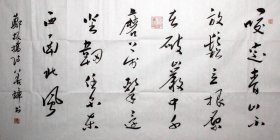 咬定青山不
放鬆立根原
在破巖中千
磨万擊還
堅韌任尔东
西南北風
鄭板橋詩